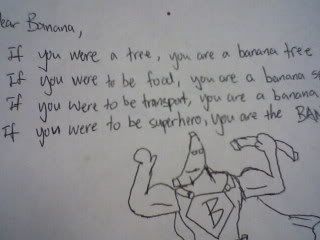 ear Banana,
If you were a tree, you are a banana tree
If you were to be food, you are a banana s
If you were to be transport, you are a banana
If you were to be superhero, you are the BAN
B